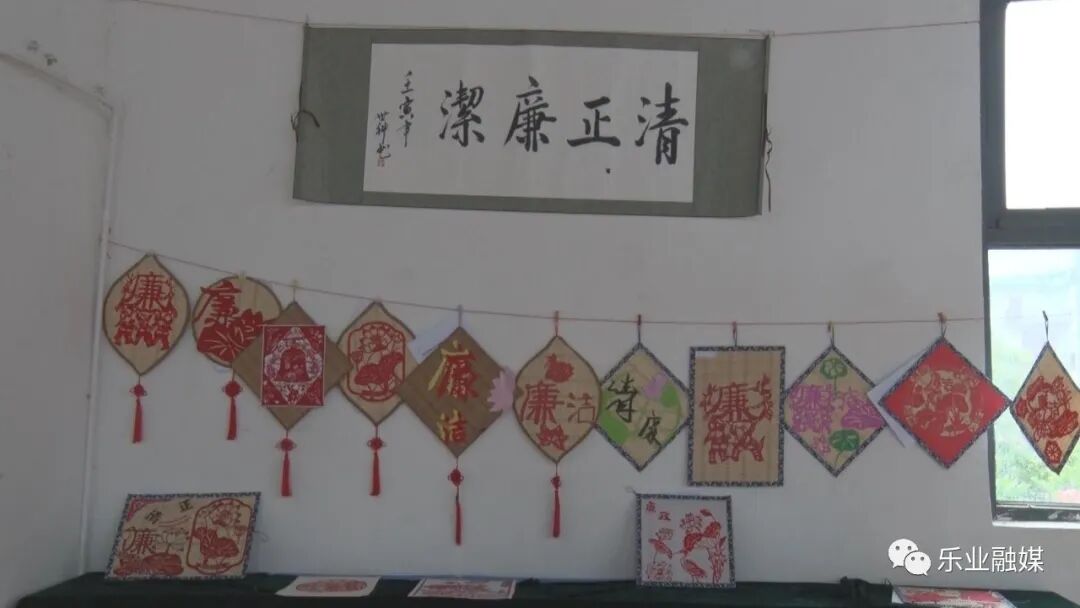 清正廉潔
壬寅年
廉
廉
廉
洁
廉
洁
清
廉
廉
正
廉
廉政
乐业融媒